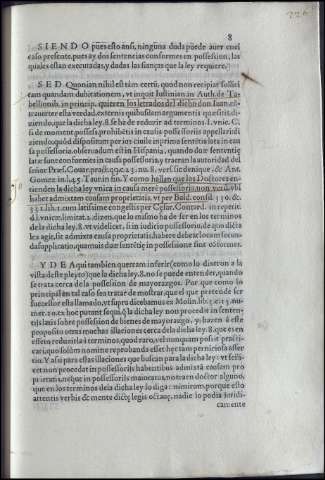 8
SIENDO pues esto ansi, ninguna duda puede auer en el
caso presente, pues ay dos sentencias conformes en possession, las
quales estan executadas, y dadas las fianças que la ley requiere.
SED Quoniam nihil est tàm certũ, quod non recipiat sollici
tam quandam dubitationem, vt inquit Iustinian. in Auth. de Ta-
bellionib. in princip. quieren los letrados del dicho don Iuan, en-
turbiar esta verdad,
diendo, que la dicha ley. 8. se ha de reducir ad terminos l. vnic. C.
si de moment. possess. prohibitiè in causis possessorijs appellari: di-
ziendo,
sa possessoria. obseruādum est in Hispania, quando duæ sententię
latæ sunt conformes in causa possessoria, y traen a autoridad del
señor Pres. Couar. pract. qq. c. 23. nu. 8. vers. & denique, & Ant.
Gomez in l. 45. Taur. in fin. Y como hallan que los Doctores en-
tienden la dicha ley vnica in causa merè possessoria, non verò vbi
habet admixtam causam proprietatis, vt per consil. 330. &
l. 1. cum latissimè congestis per Contard. in repetit.
d. l. vnicæ, limitat. 1. dizen, que lo mismo ha de ser en los terminos
de la dicha ley. 8. vt videlicet, si in iudicio possessorio, de quo dicta
lex agit, sit admixta causa proprietatis, habere debeat locum secun-
da supplicatio, quamuis duæ sentētię in possessione sint cōformes.
Y DE Aqui tambien querran inferir (como lo dixeron a la
vista deste pleyto) que la dicha ley. 8. no se puede entender, quando
se trata cerca de la possession de mayorazgos. Por que como lo
principal en tal caso sea tratar de mostrar, que el que pretende ser
successor esta llamado, vt supra dicebamus ex Molin. lib. 3. c. 13. nu-
mer. 20. ex hoc putant sequi, quòd dicta ley non procedat in senten-
tijs latis sobre possession de bienes de mayorazgo. y hazen à este
proposito otras muchas illaciones cerca de la dicha ley. 8. que es en
effeto reduzirla à terminos, quòd rarò, vel nunquam possit practi-
cari, quo solùm nomine reprobanda esset hæc tam perniciosa asser
tio. Y assi para estas illaciones que buscan para la dicha ley: vt scili-
cet non procedat in possessorijs habentibus admixtā causam pro
prietatis, neque in possessorijs maioratus, no traen doctor alguno,
que en los terminos de la dicha ley lo diga: nimirum, porque esto
attentis verbis & mente dictę legis octauę, nadie lo podia juridi-
camente